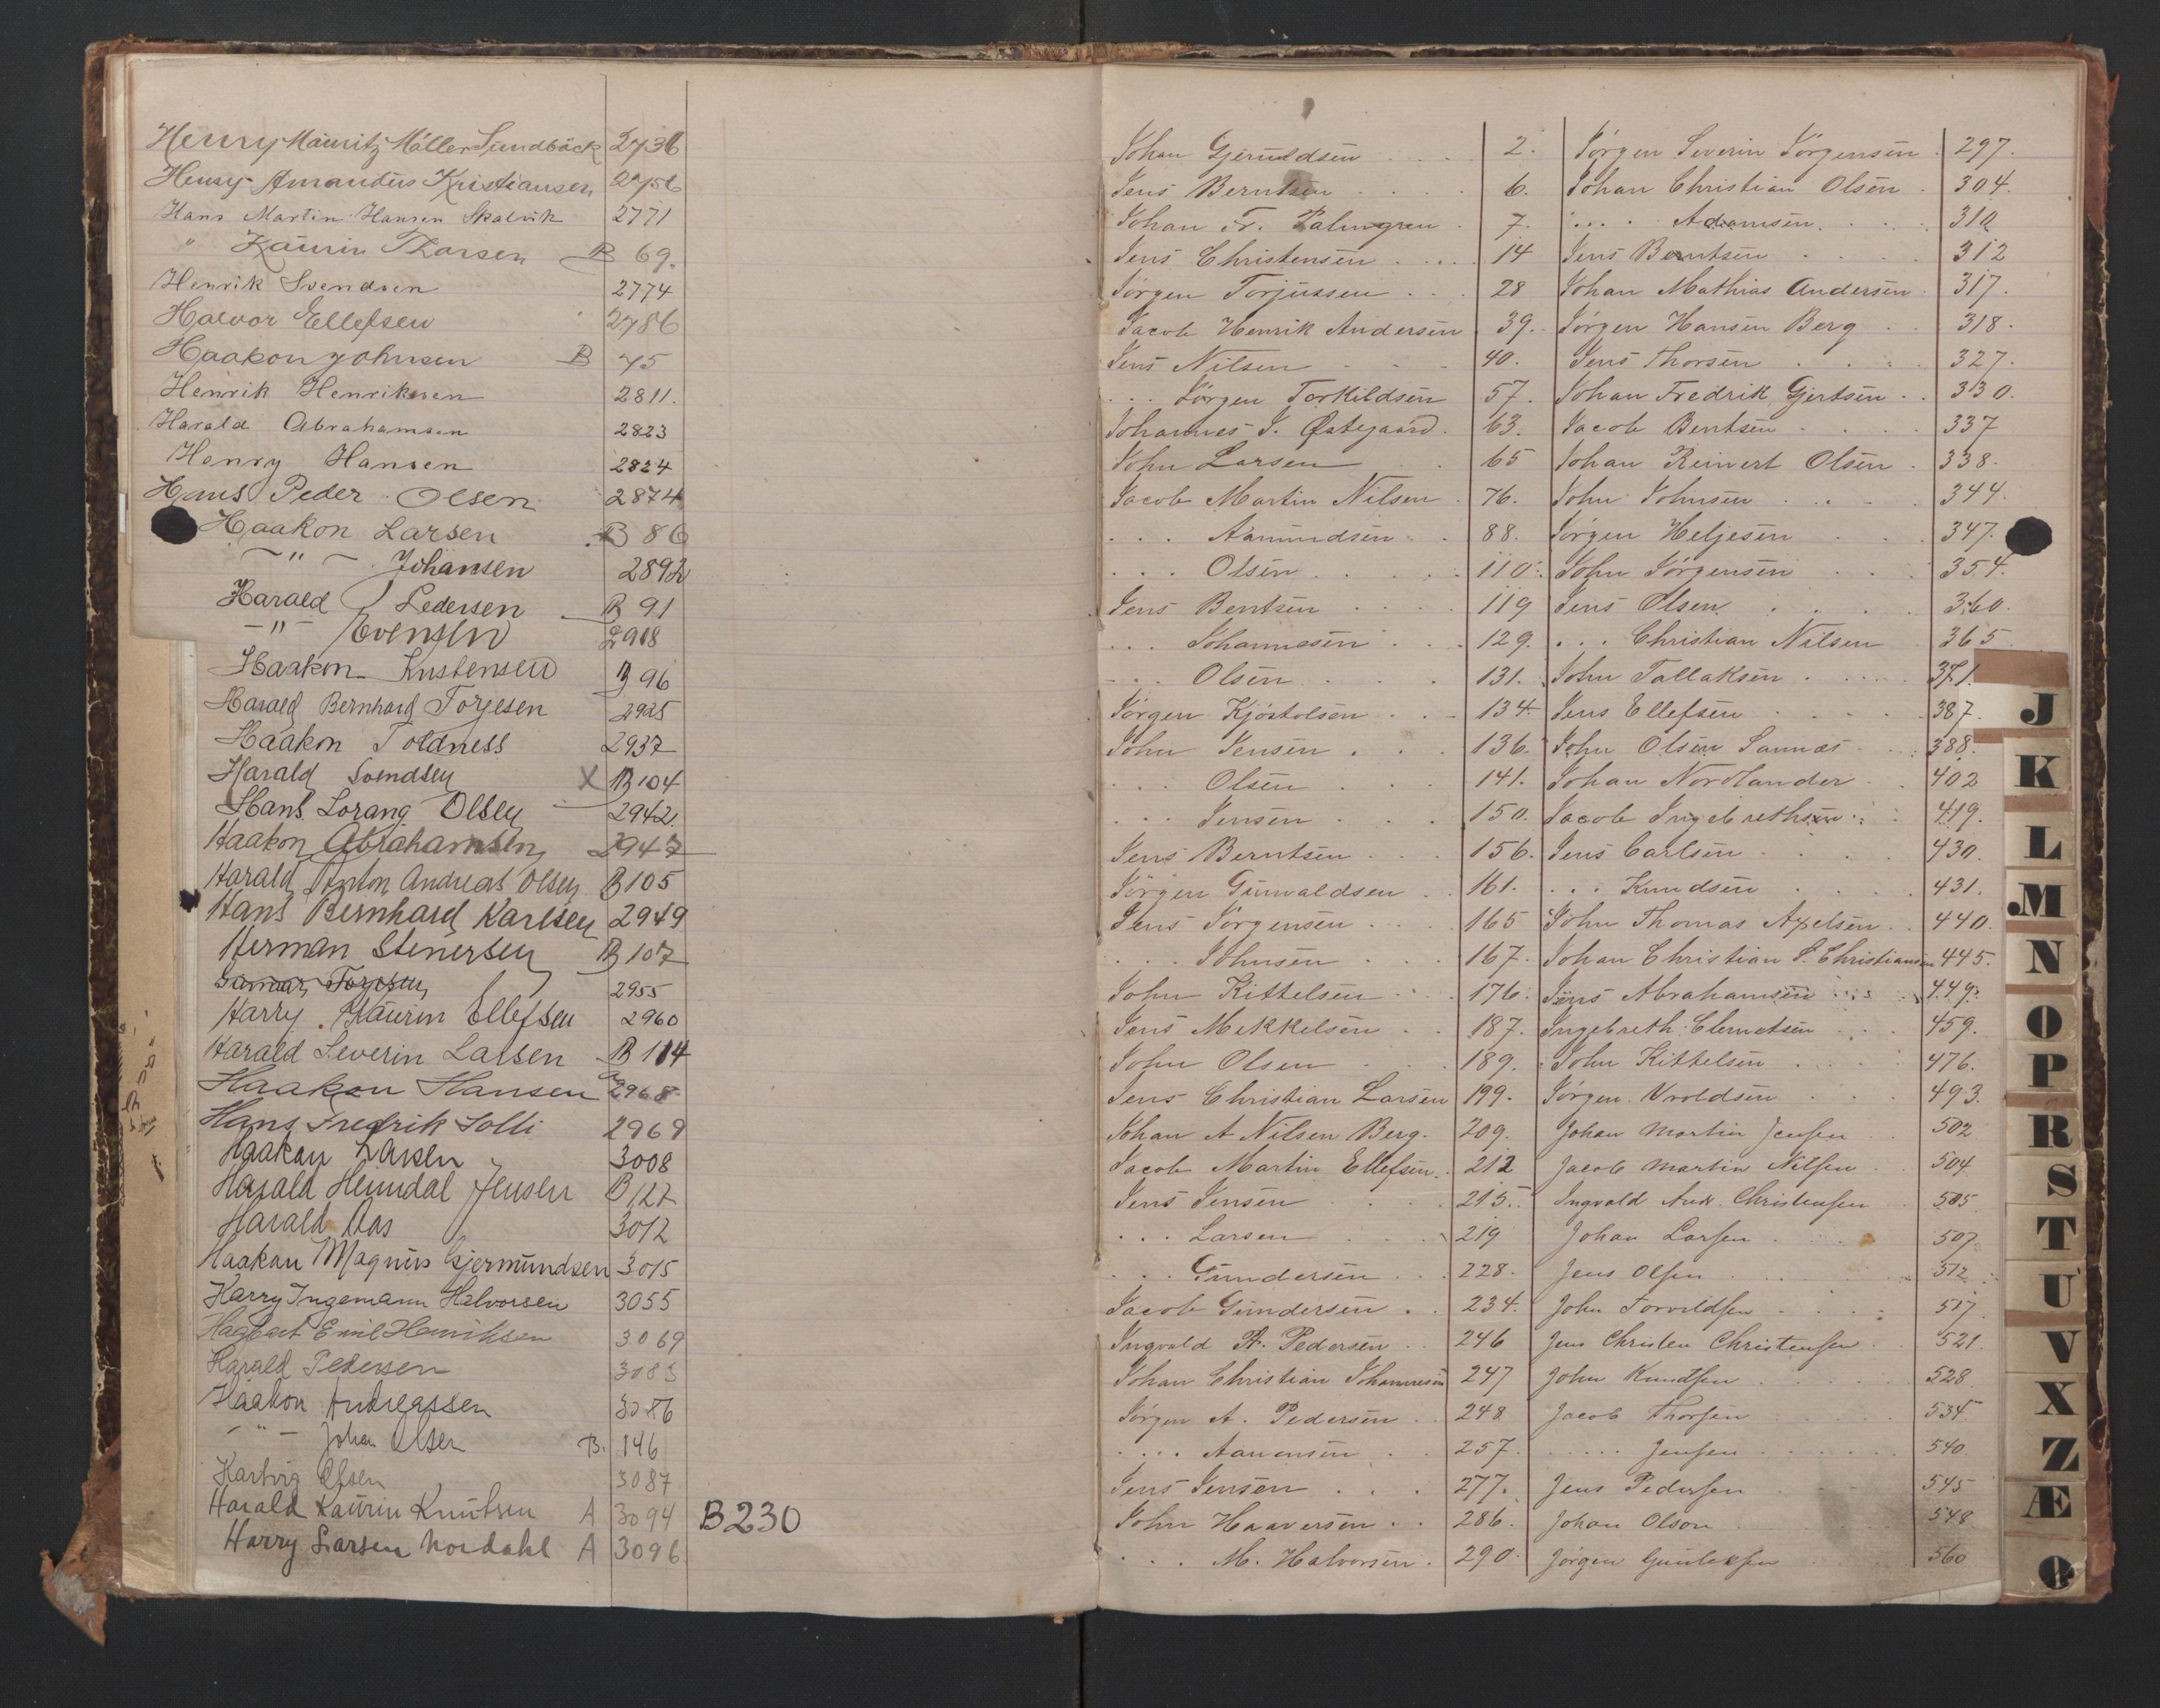 Henry Mauritz Möller Sundbäck 2736
Henry Amandus Kristiansen 2756
Hans Martin Hansen 2771
" Kaurin Tharsen B 69.
Henrik Svendsen 2774
Halvor Ellefsen 2786
Haakon Johnsen B 75
Henrik Henriksen 2811.
Harald Abrahamsen 2823
Henry Hansen 2824
Hans Peder Olsen 2874
Haakon Larsen B 86
—"— Johansen 2892
Harald Pedersen B 91
—"— Evensen 2918
Haakon Kristensen B 96
Harald Bernhard Torjesen 2925
Haakon Toldness 2937
Harald Svendsen X B 104
Hans Lorang Olsen 2942.
Haakon Abrahamsen 2947
Harald Anton Andreas Olsen B 105
Hans Bernhard Karlsen 2949
Herman Stenersen B 107
Torjesen 2955
Harry Kaurin Ellefsen 2960
Harald Severin Larsen B 114
Haakon Hansen 2968
Hans Fredrik Solli 2969
Haakan Larsen 3008
Harald Heimdal Jensen B 127
Harald Aas 3012
Haakan Magnus Gjermundsen 3015
Harry Ingemann Halvorsen 3055
Hagbart Emil Henriksen 3069
Harald Pedersen 3083
Haakon Andreassen 3086
—"— Johan Olsen B. 146
Hartvig Olsen 3087
Harald Kaurin Knutsen A 3094 B230
Harry Larsen Nordahl A 3096
Johan Gjeruldsen . . . . 2.
Jens Berntsen . . . . 6.
Johan Fr. Palmgren . 7.
Jens Christensen . . . . 14
Jörgen Torjussen . . . 28
Jacob Henrik Andersen 39.
Jens Nilsen . . . 40.
. . . Jörgen Torkildsen 57.
Johannes J. Østegaard. 63.
John Larsen . . 65
Jacob Martin Nilsen . 76.
. . . Aamundsen . . 88.
. . . Olsen . . . . 110.
Jens Bentsen . . . . 119
. . . Johannesen . . . 129.
. . . Olsen . . . . 131.
Jörgen Kjöstolsen . . . 134.
John Jensen . . . 136.
. . . Olsen . . . 141.
. . . Jensen . . . . 150.
Jens Berntsen . . . 156.
Jörgen Gunvaldsen . . 161.
Jens Jörgensen . . . . 165
. . . Johnsen . . . 167.
John Kittelsen . . . 176.
Jens Mikkelsen . . 187.
John Olsen . . . 189.
Jens Christian Larsen 199.
Johan A Nilsen Berg. 209.
Jacob Martin Ellefsen. 212
Jens Jensen . . . 215.
. . . Larsen . . . 219
. . . Gundersen . . . 228.
Jacob Gundersen . . 234.
Ingvald A. Pedersen . . 246
Johan Christian Johannesen 247
Jörgen A. Pedersen . . 248
. . . . Aanensen . . 257.
Jens Jensen . . . . 277.
John Haaversen . . 286.
. . . M. Halvorsen . 290.
Jörgen Severin Jörgensen . 297.
Johan Christian Olsen . 304.
. . . . Adamsen. . . . 310
Jens Berntsen . . . . 312
Johan Mathias Andersen. 317.
Jörgen Hansen Berg . . 318.
Jens Thorsen . . . . 327.
Johan Fredrik Gjertsen . . 330.
Jacob Bentsen . . . . 337
Johan Reinert Olsen . 338.
John Johnsen . . . . 344.
Jörgen Heljesen . . . 347.
John Jörgensen . . . 354.
Jens Olsen . . . . 360.
. . . Christian Nilsen 365
John Tallaksen . . . . 371.
Jens Ellefsen . . . . 387.
John Olsen Sannes . . . 388.
Johan Nordlander . . 402
Jacob Ingebrethsen . . 419.
Jens Carlsen . . . . 430.
. . . Knudsen . . . . 431.
John Thomas Axelsen . . 440.
Johan Christian S. Christiansen 445.
Jens Abrahamsen . . . . 449.
Ingebreth Clemetsen . . . 459.
John Kittelsen . . . . 476.
Jörgen Wroldsen . . . 493.
Johan Martin Jensen . . 502
Jacob Martin Nilsen . . 504.
Ingvald Andr. Christensen . . 505
Johan Larsen . . . . 507
Jens Olsen . . . . 512
John Torvildsen . . . . 517
Jens Christen Christensen . . 521.
John Knudsen . . . . 528
Jacob Thorsen . . . . 534.
. . . . . Jensen . . . . 540
Jens Pedersen . . . 545
Johan Olson . . . . 548
Jörgen Gunleksen . . . 560
J
K
L
M
N
O
P
R
S
T
U
V
X
Z
Æ
Ø